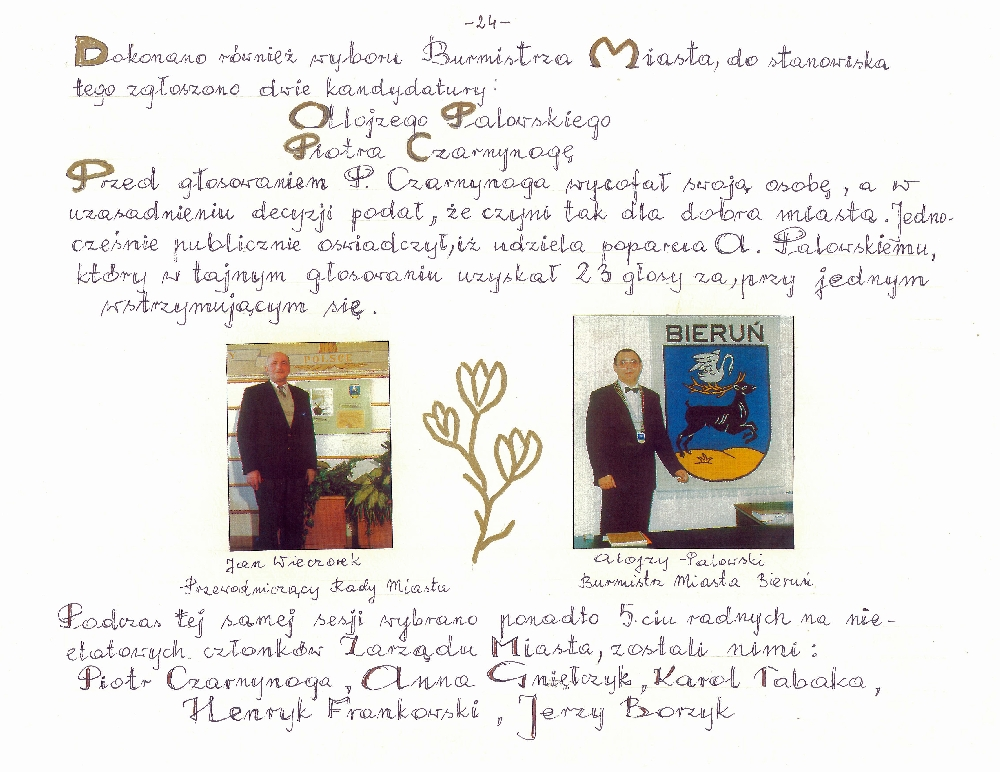 -24-
Dokonano również wyboru Burmistrza Miasta, do stanowiska
tego zgłoszono dwie kandydatury:
Alojzego Palowskiego
Piotra Czarnynogę
Przed głosowaniem P. Czarnynoga wycofał swoją osobę, a w
uzasadnieniu decyzji podał, że czyni tak dla dobra miasta. Jedno-
cześnie publicznie oświadczył, iż udziela poparcia A. Palowskiemu,
który w tajnym głosowaniu uzyskał 23 głosy za, przy jednym
wstrzymującym się.
POLSCE
BIERUŃ
Jan Wieczorek
-Przewodniczący Rady Miasta
Alojzy -Palowski
Burmistrz Miasta Bieruń
Podczas tej samej sesji wybrano ponadto 5.ciu radnych na nie-
etatowych członków Zarządu Miasta, zostali nimi:
Piotr Czarnynoga, Anna Gniełczyk, Karol Tabaka,
Henryk Frankowski, Jerzy Borzyk